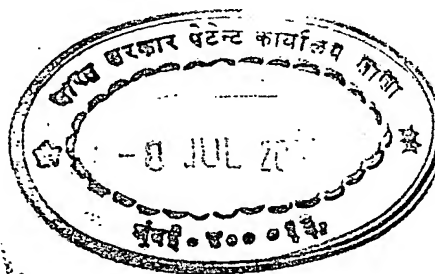 भारत सरकार पेटेन्ट कार्यालय शाखा
-8 JUL 20
मुंबई - ४००